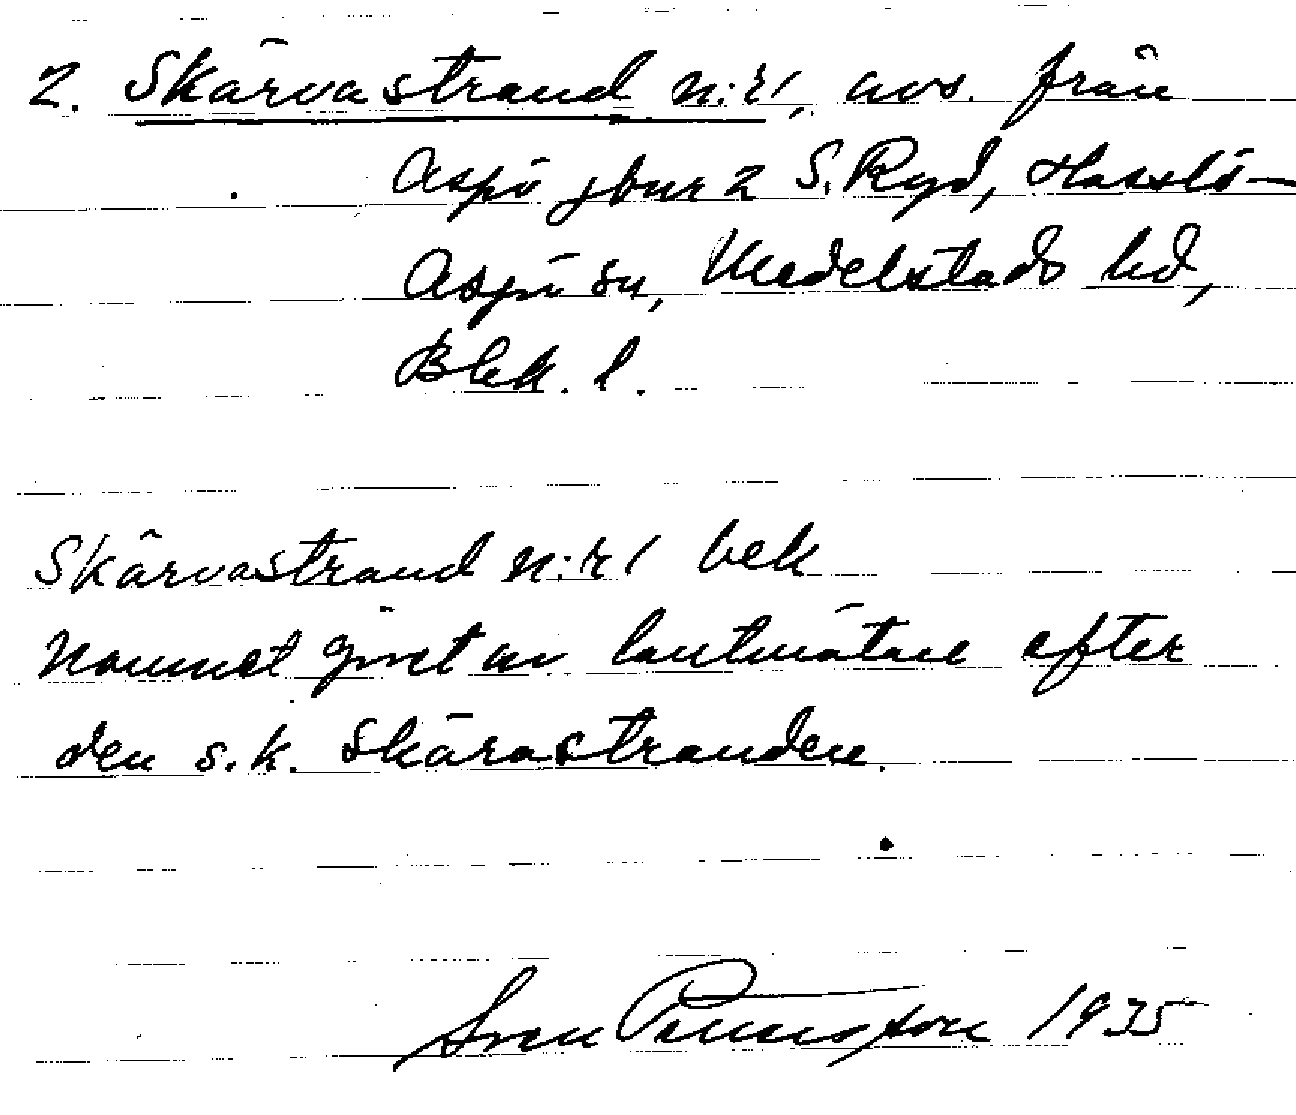 2. Skärvastrand n:r 1, avs. från
Aspö jbnr 2 S. Ryd, Hasslö-
Aspö sn, Medelstads hd,
Blek. l.
Skärvastrand n:r 1 bek
Namnet givet av lantmätare efter
den s.k. Skärvastranden.
Sven 1935